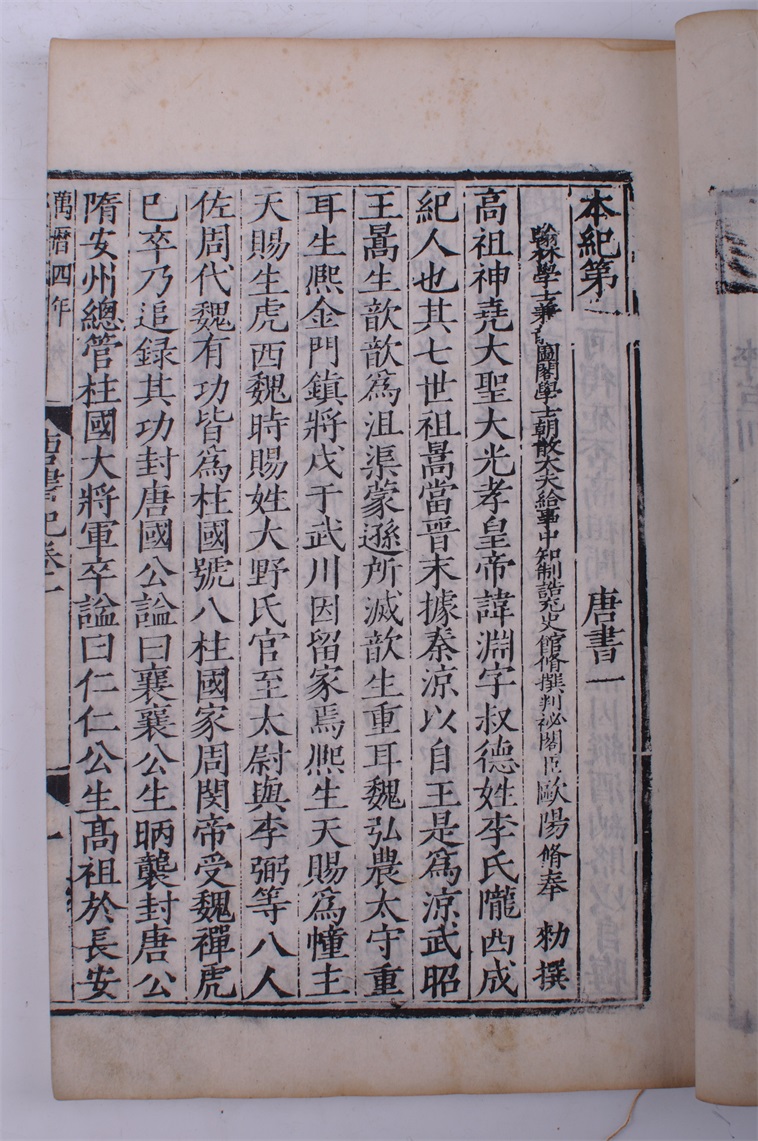 本紀第一 唐書一
翰林學士兼龍圖閣學士朝散大夫給事中知制誥充史館脩撰判祕閣臣歐陽脩奉 勑撰
高祖神堯大聖大光孝皇帝諱淵字叔德姓李氏隴西成
紀人也其七世祖暠當晉末據秦涼以自王是爲涼武昭
王暠生歆歆爲沮渠蒙遜所滅歆生重耳魏弘農太守重
耳生熈金門鎮將戍于武川因留家焉熈生天賜爲幢主
天賜生虎西魏時賜姓大野氏官至太尉與李弼等八人
佐周代魏有功皆爲柱國號八柱國家周閔帝受魏禪虎
已卒乃追録其功封唐國公謚曰襄襄公生昞襲封唐公
隋安州總管柱國大將軍卒謚曰仁仁公生高祖於長安
萬曆四年
唐書紀卷一
一